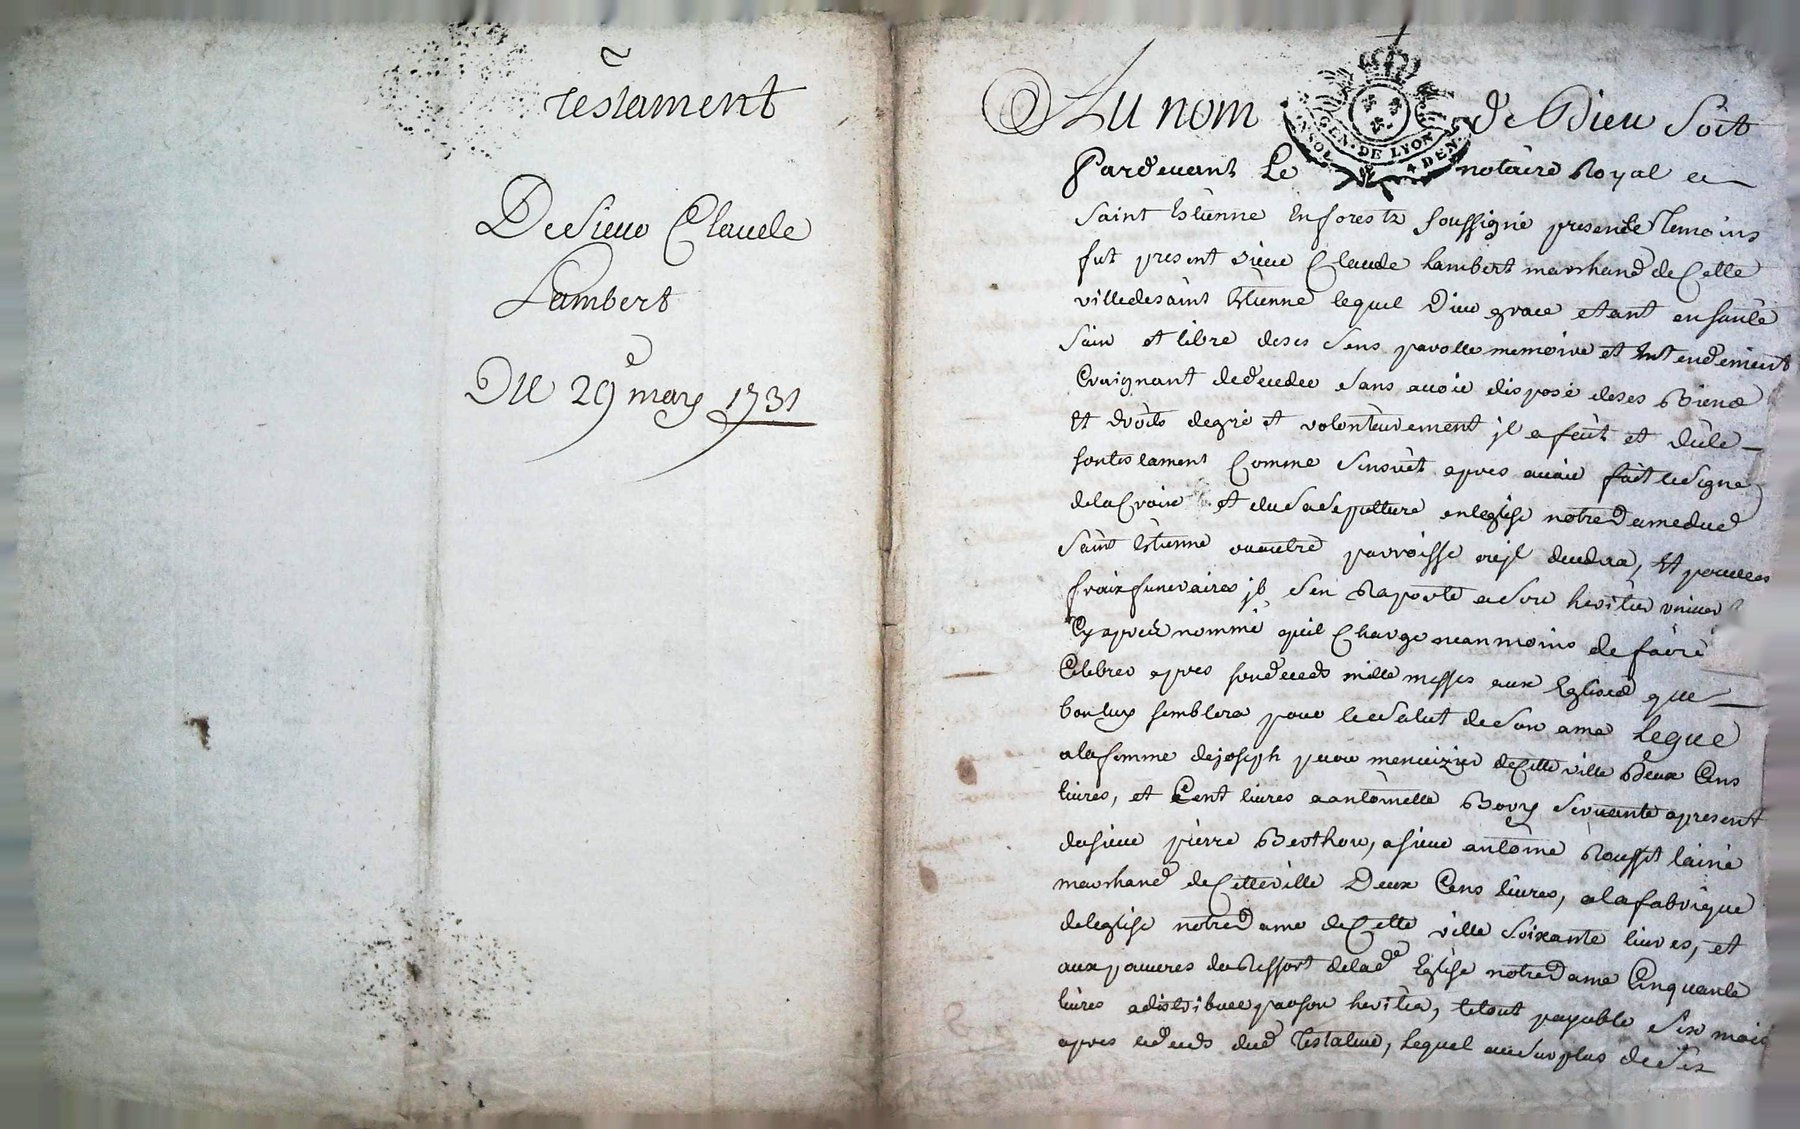 testament
De Sieur Claude
Lambert
Du 29e mars 1731
Au nom de Dieu Soit
GEN. DE LYON
Pardevant Le notaire Royal a
Saint Estienne En forestz soussigné presents temoins
fut present sieur Claude Lambert marchand de Cette
ville de saint Estienne lequel Dieu grace etant en santé
sain et libre de ses sens parolle memoire et Entendement
Craignant de deceder sans avoir disposé de ses Biens
Et droits de gré et volontairement jl a fait et dicté
son testament Comme s'ensuit apres avoir fait le signe
de la Croix et elu sa sepulture en leglise notre dame dud
saint Estienne ou autre parroisse ou jl decedera, Et pour les
fraix funeraires jl s'en Raporte a son heritier
Cy apres nommé quil Charge neanmoins de faire
Celebrer apres son deceds mille messes aux Eglises que
bon luy semblera pour le salut de son ame Legue
a la femme de joseph menuizier de Cette ville Deux Cens
livres, et Cent livres a antoinette Bory servante a present
du sieur pierre Berthon, a sieur antoine Rousset lainé
marchand de Cette ville Deux Cens livres, a la fabrique
de leglise notre dame de Cette ville soixante livres, et
aux pauvres du Ressort de lad Eglise notre dame Cinquante
livres a distribuer par son heritier, le tout payable six mois
apres le deceds dud Testateur, Lequel au surplus de ses